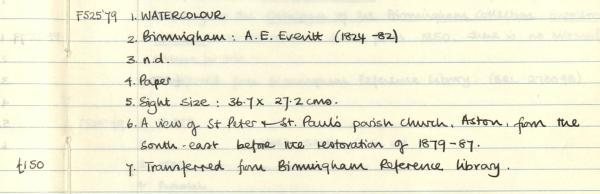 F525'79 1. WATERCOLOUR
2. Birmingham: A.E. Everitt (1824-82)
3. n.d.
4. Paper
5. Sight size: 36.7 x 27.2 cms.
6. A view of St Peter + St. Paul's parish church, Aston, from the
south-east before the restoration of 1879-87.
£150 7. Transferred from Birmingham Reference Library.